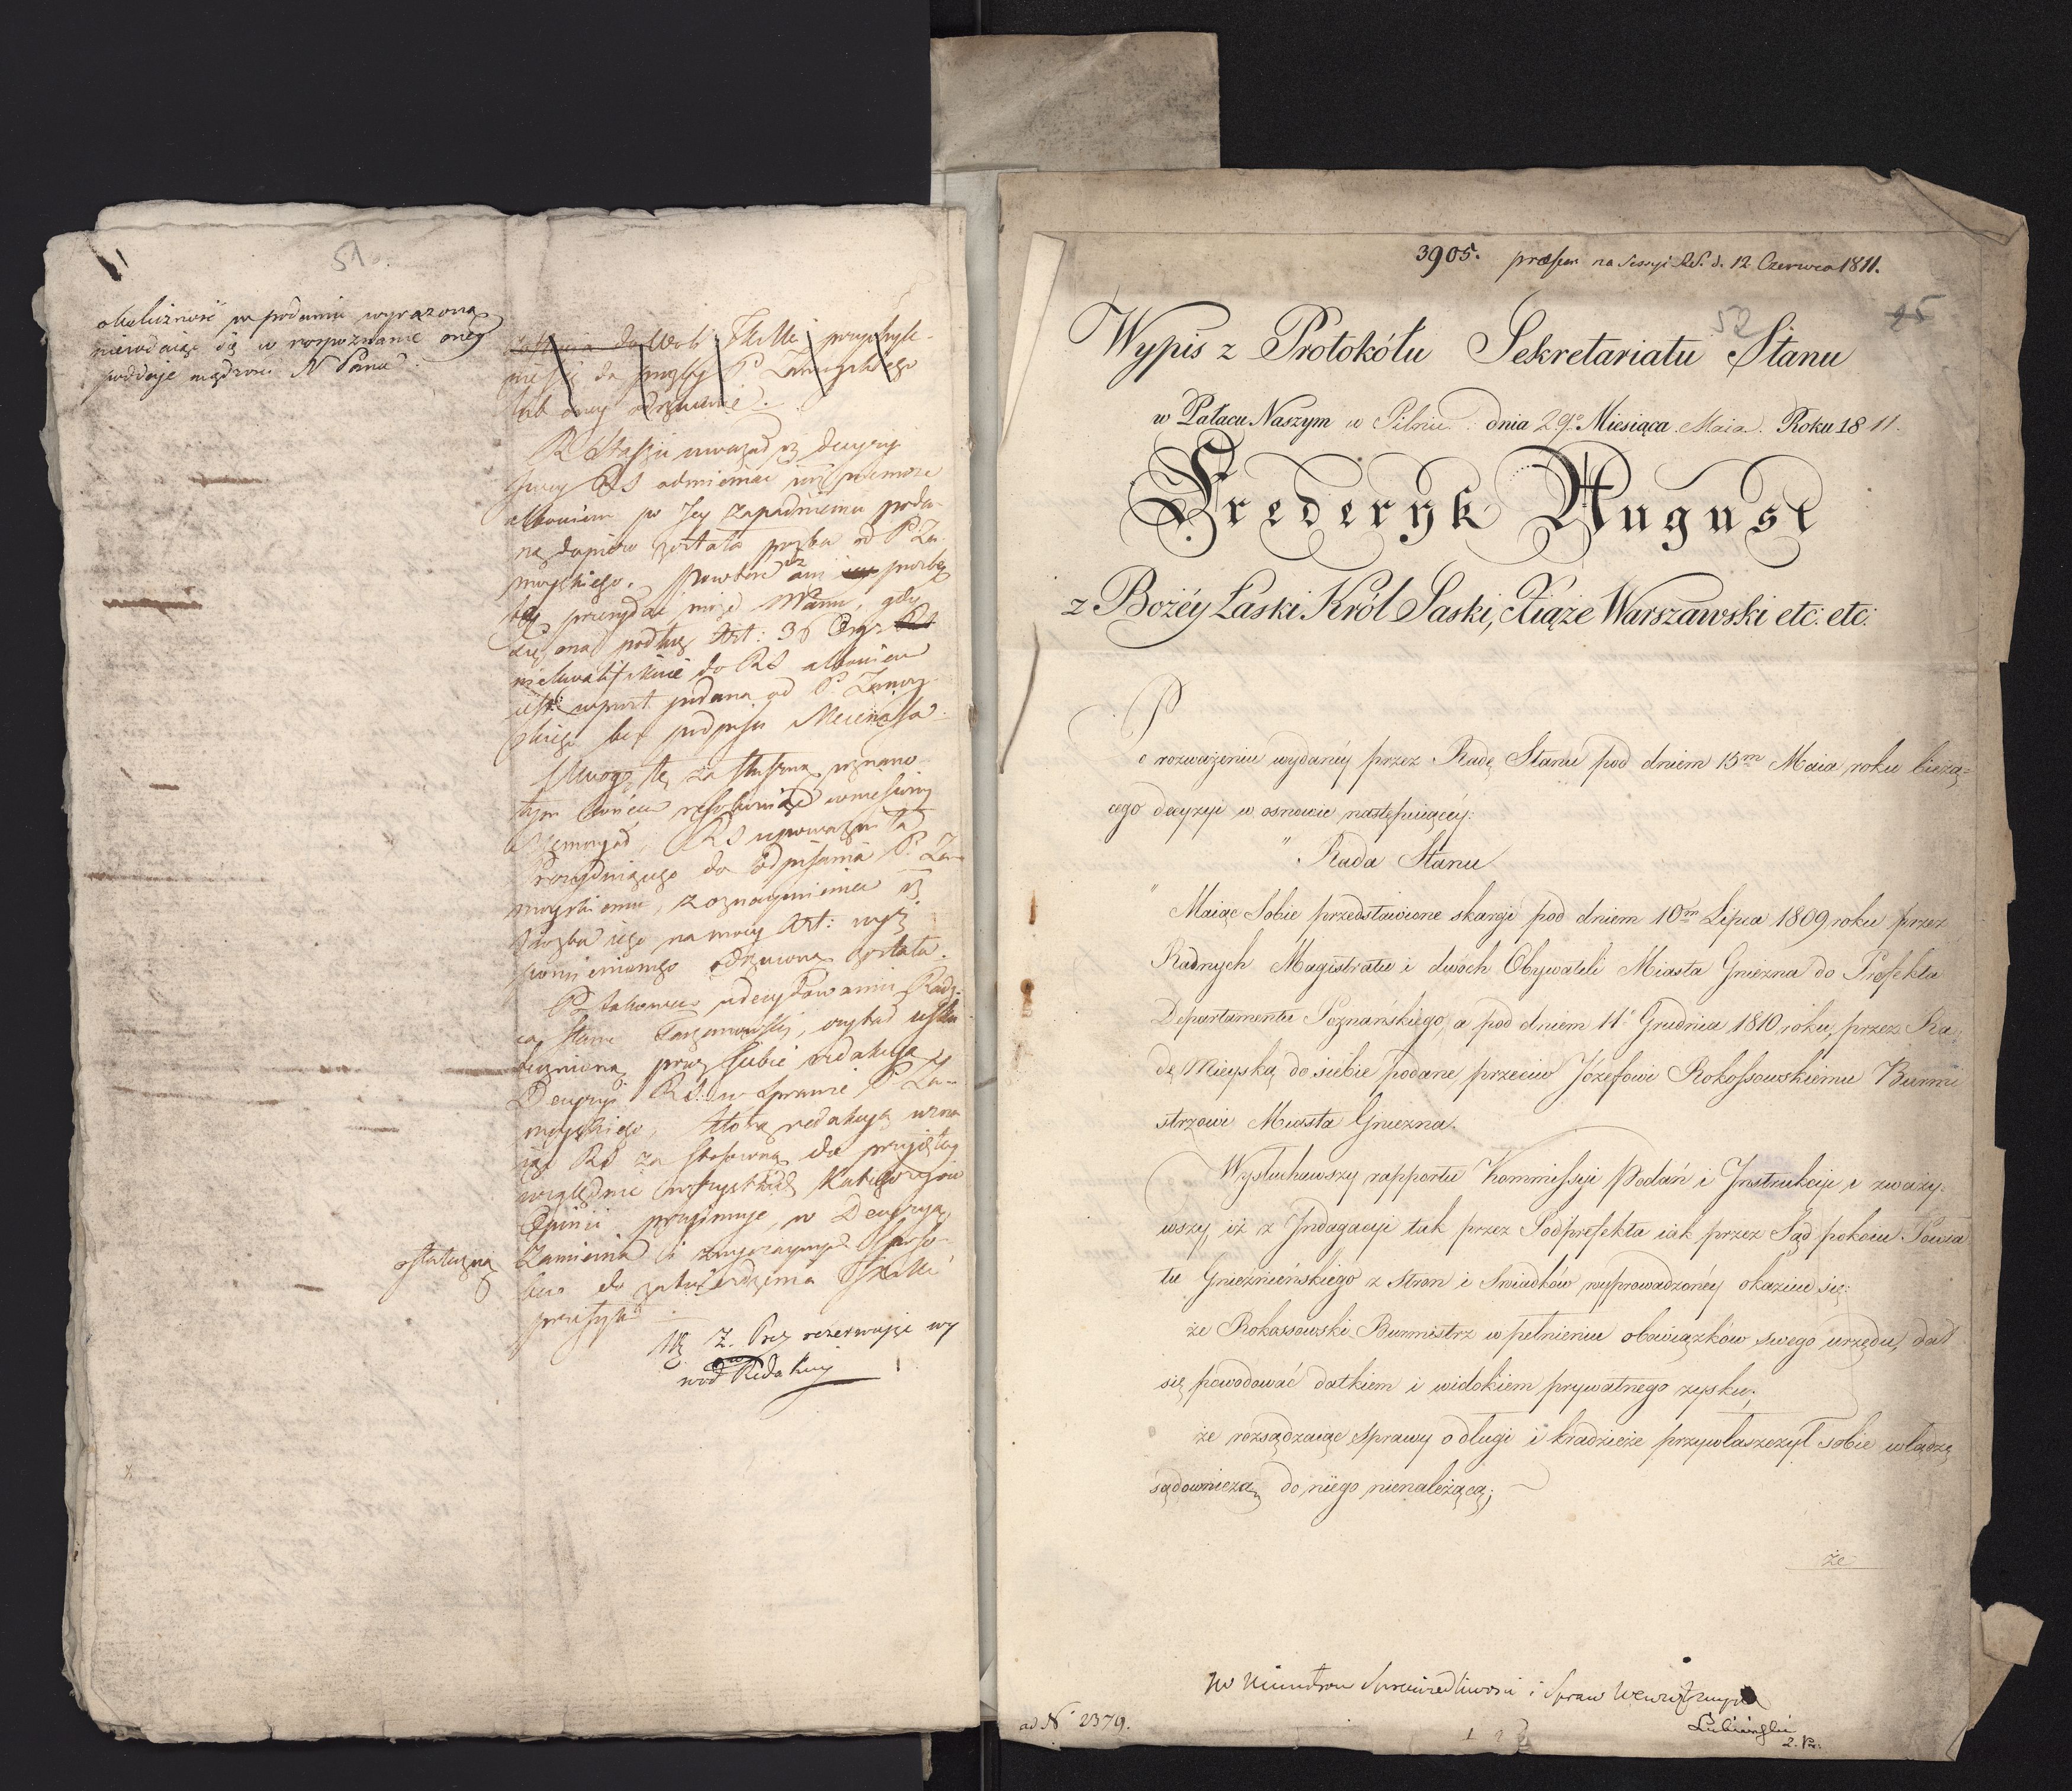 51.
okoliczność w podaniu wyrażoną
niewdaiąc się w rozpoznanie oney
poddaie mądrości N Pana.
lub oney odrzucenie.
R Staszic uważał iż decyzyi
swey RS odmieniać nie może
albowiem po Jey zapadnieniu poda-
ną dopiero została prośba od P. Za-
moyskiego. powtóre iż ani prośbę
tę przyiąć może
ona podług Art: 36 Org:
niekwalifikuie do RS albowiem
iest wprost podana od P. Zamoy-
skiego bez podpisu Mecenasa.
Uwagę tę za słuszną uznano
RS upoważniła
Prezyduiącego do odpisania P. Za-
moyskiemu, z oznaymieniem iż
prośba iego na mocy Art: wyż
pomienionego odrzuconą została.
Po takowem udecydowaniu Radz-
ca Stanu czytał usku-
tecznioną przez siebie redakcyą
Decyzyi RS. w sprawie P. Za-
moyskiego, którą redakcyą uzna-
iąc RS za stosowną do przyiętey
względnie wszystkich Kategoryów
Opinii przyimuie, w Decyzyą
ostateczną
zamienia i zwyczaynym sposo-
bem do zatwierdzenia
przesyła.
NB Z. Prez rezerwuie wy
wód Redakcyi
3905. præsen. na Sessyi R.S. d. 12 Czerwca 1811.
52
25
Wypis z Protokółu Sekretariatu Stanu
w Pałacu Naszym w Pilnic. dnia 29º Miesiąca Maia. Roku 1811.
Fryderyk August
z Bożéy Łaski Król Saski, Xiąże Warszawski etc: etc:
Po rozważeniu wydanéy przez Radę Stanu pod dniem 15m Maia roku bieżą-
cego decyzyi w osnowie następuiącéy:
" Rada Stanu
" Maiąc Sobie przedstawione skargi pod dniem 10m Lipca 1809 roku przez
Radnych Magistratu i dwóch Obywateli Miasta Gniezna do Prefekta
Departamentu Poznańskiego, a pod dniem 11º Grudnia 1810 roku, przez Ra-
dę Mieyską do siebie podane przeciw Józefowi Rokossowskiemu Burmi
strzowi Miasta Gniezna.
Wysłuchawszy rapportu Kommissyi Podań i Instrukcyi i zważy-
wszy, iż z Indagacyi tak przez Podprefekta iak przez Sąd pokoiu Powia
tu Gnieźnieńskiego z stron i świadków wyprowadzonéy okazuie się:
że Rokossowski Burmistrz w pełnieniu obowiązków swego urzędu, dał
się powodować datkiem i widokiem prywatnego zysku;
że rozsądzaiąc sprawy o długi i kradzieże przywłaszczył sobie władzę
sądowniczą do niego nienależącą;
że
do Ministrów Sprawiedliwości i Spraw Wewnętrznych
Łubieński
ad Nº 2379.